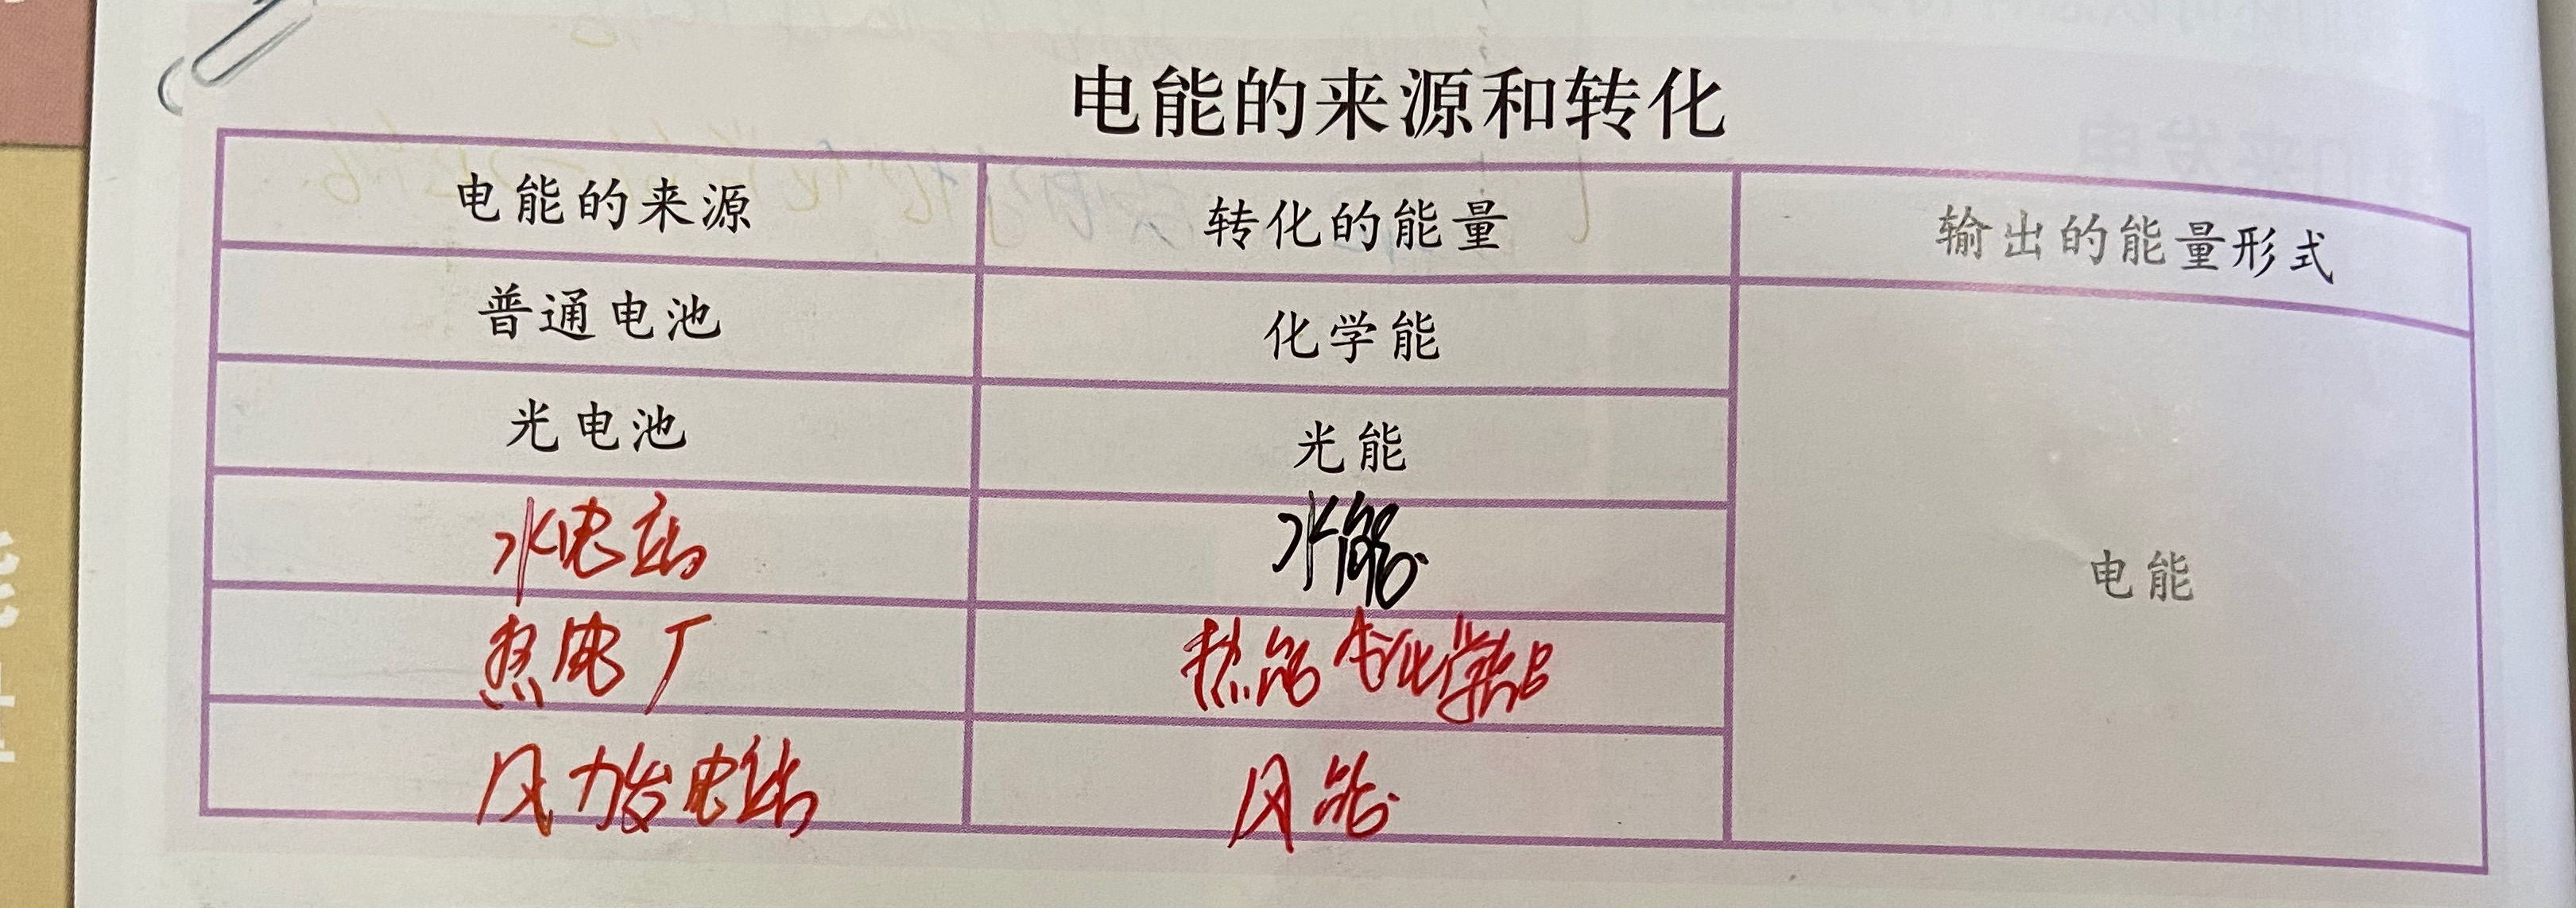 电能的来源和转化
电能的来源 转化的能量 输出的能量形式
普通电池 化学能 电能
光电池 光能
水电站 水能
热电厂 热能 化学能
风力发电站 风能